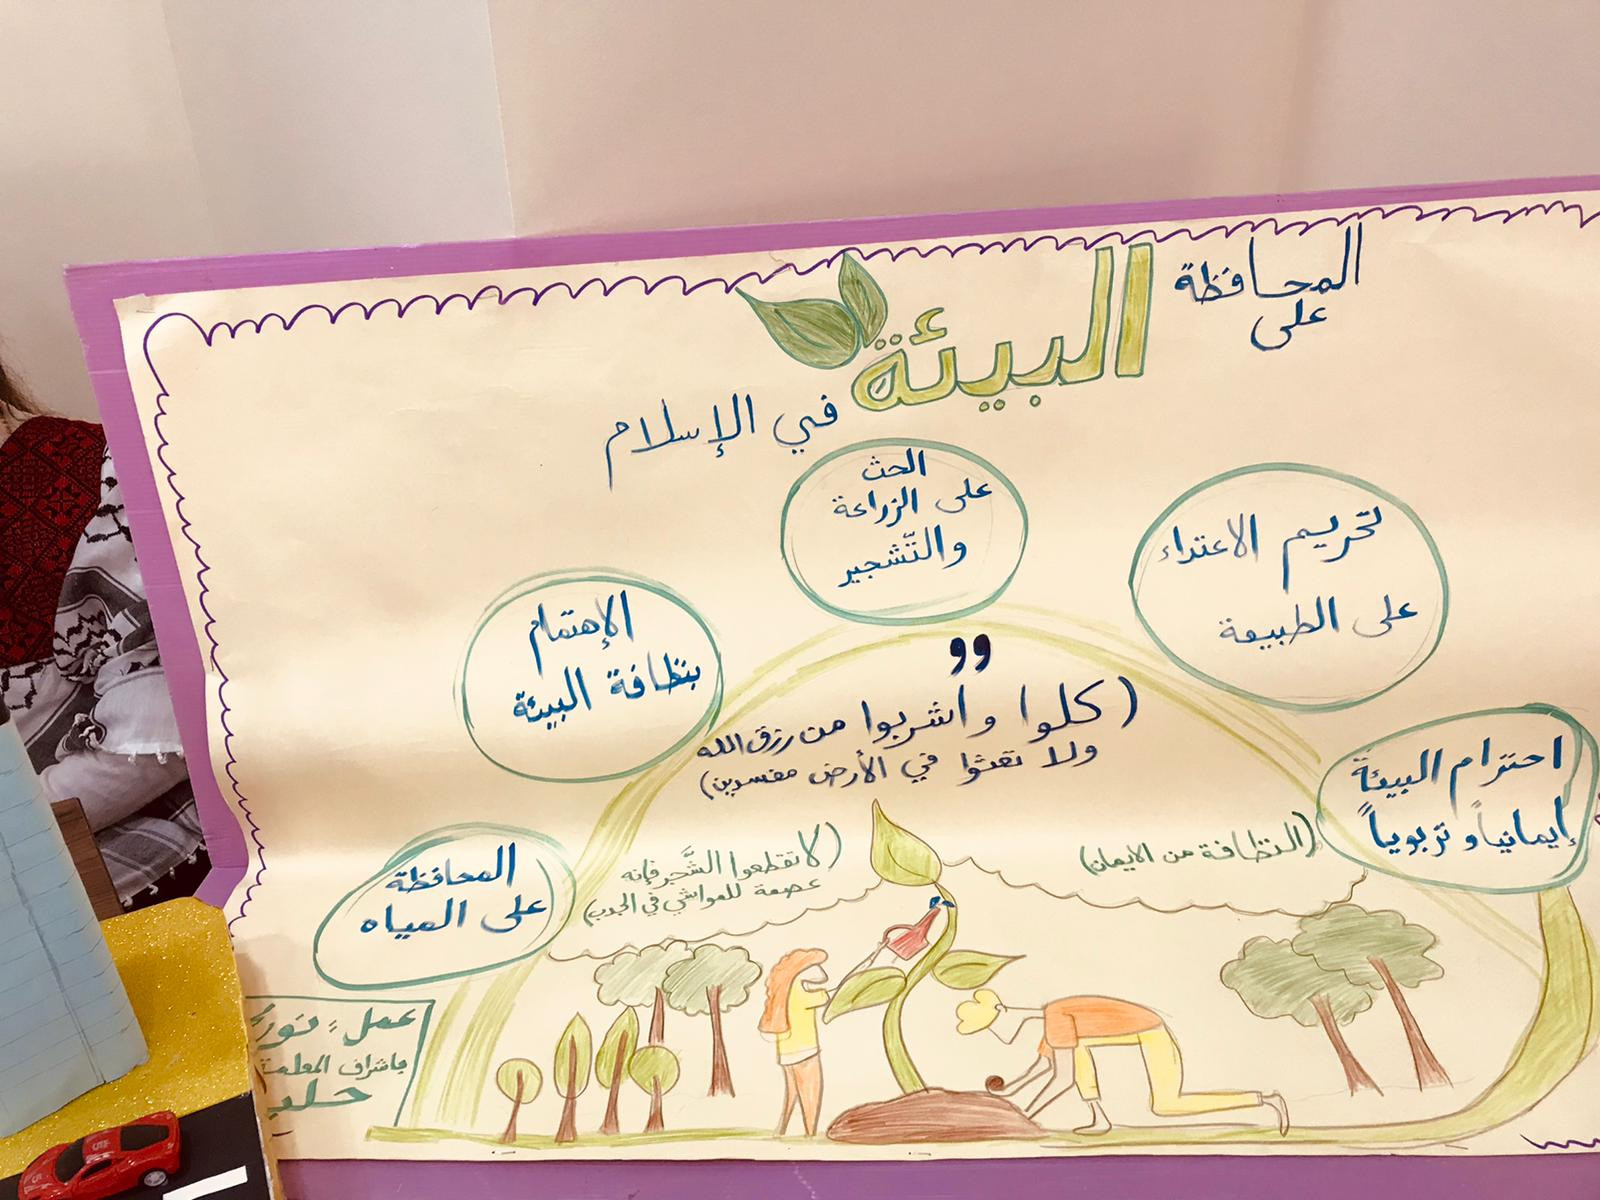 المحافظة
على
البيئة
في الإسلام
الحث
على الزراعة
والتّشجير
تحريم الاعتداء
على الطبيعة
الإهتمام
بنظافة البيئة
احترام البيئة
إيمانياً و تربوياً
المحافظة
على المياه
(كلوا واشربوا من رزق الله
ولا تعثوا في الأرض مفسدين)
(النظافة من الايمان)
(لا تقطعوا الشَّجر فإنه
عصمة للمواشي في الجدب)
عمل:
باشراف المعلمة